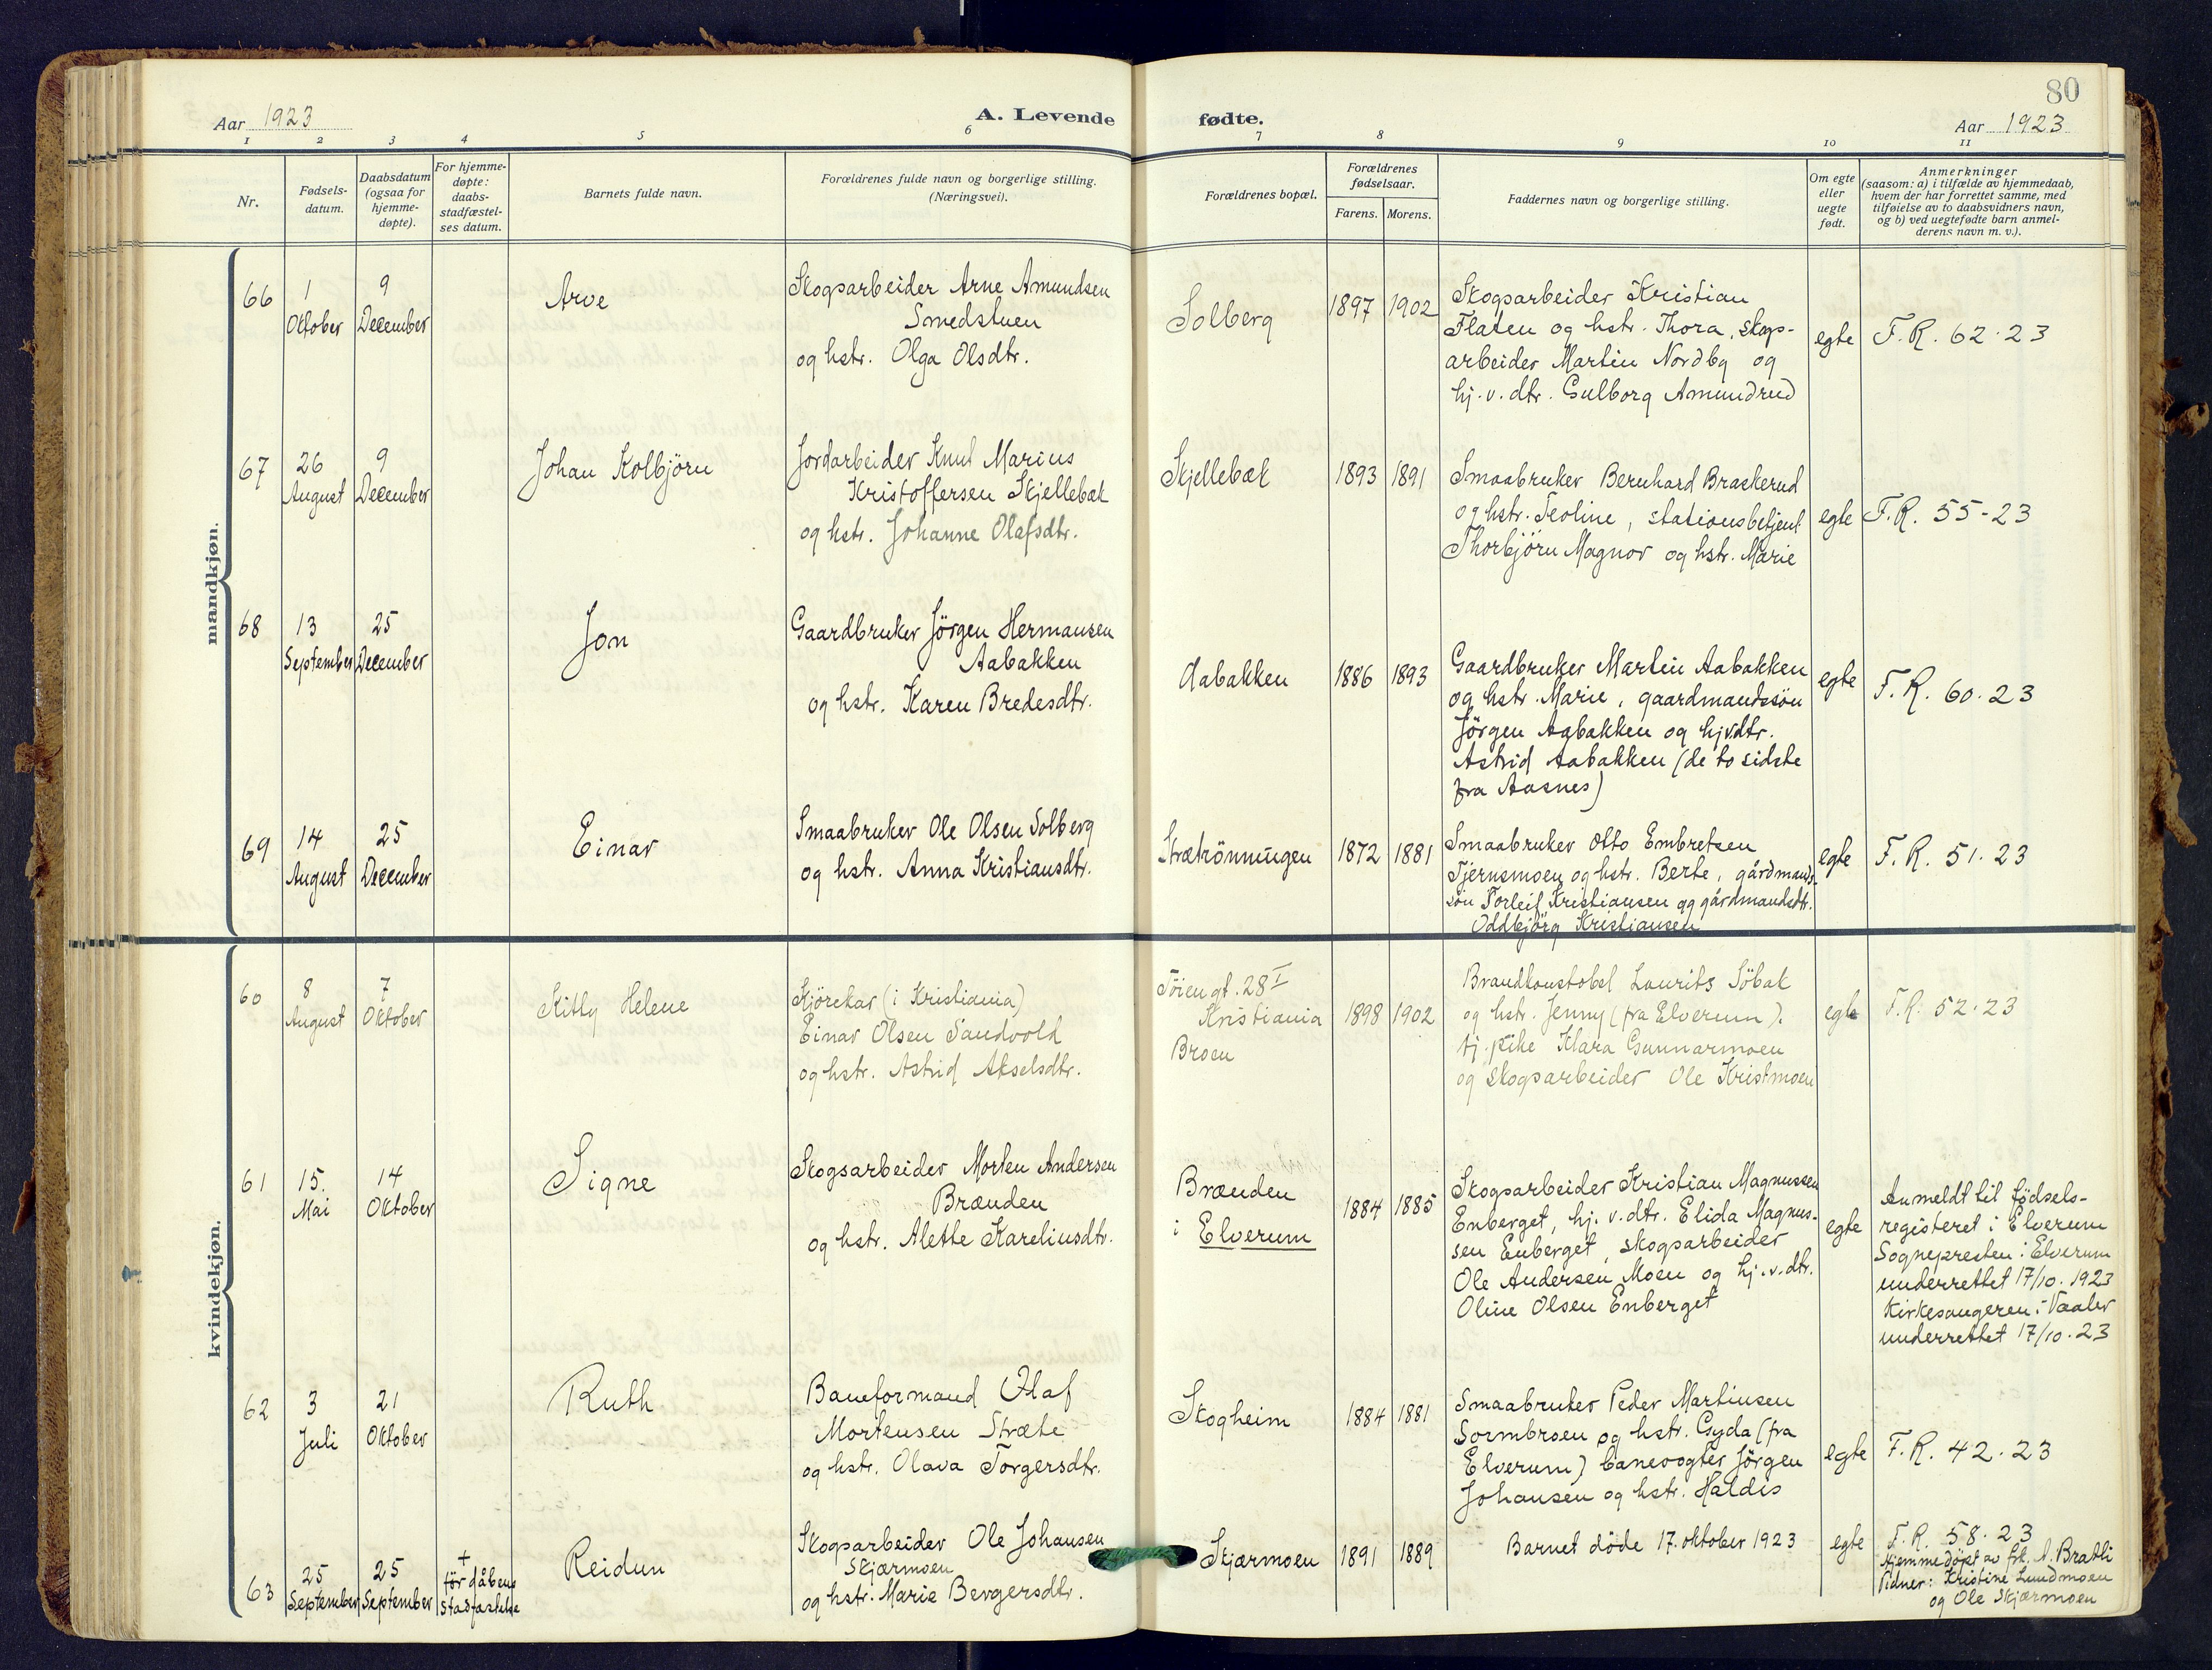 80
Aar 1923
A. Levende
fødte.
Aar 1923
1 2 3 4 5 6 7 8 9 10 11
Nr.
Fødsels-
datum.
Daabsdatum
(ogsaa for
hjemme-
døpte).
For hjemme-
døpte:
daabs-
stadfæstel-
ses datum.
Barnets fulde navn.
Forældrenes fulde navn og borgerlige stilling.
(Næringsvei).
Forældrenes bopæl.
Forældrenes
fødselsaar.
Farens. Morens.
Faddernes navn og borgerlige stilling.
Om egte
eller
uegte
født.
Anmerkninger
(saasom: a) i tilfælde av hjemmedaab,
hvem der har forrettet samme, med
tilføielse av to daabsvidners navn,
og b) ved uegtefødte barn anmel-
derens navn m. v.).
mandkjøn.
66
1
Oktober
9
December
Arve
Skogsarbeider Arne Amundsen
Smedstuen
og hstr. Olga Olsdtr.
Solberg
1897 1902
Skogsarbeider Kristian
Flaten og hstr. Thora, skogs-
arbeider Martin Nordby og
hj.v.dtr. Gulborg Amundrud
egte
F.R. 62.23
67
26
August
9
December
Johan Kolbjörn
Jordarbeider Knut Marius
Kristoffersen Skjellebæk
og hstr. Johanne Olafsdtr.
Skjellebæk
1893 1891
Smaabruker Bernhard Braskerud
og hstr. Teoline, stationsbetjent
Thorbjörn Magnor og hstr. Marie
egte
F.R. 55-23
68
13
September
25
December
Jon
Gaardbruker Jörgen Hermansen
Aabakken
og hstr. Karen Bredesdtr.
Aabakken
1886 1893
Gaardbruker Martin Aabakken
og hstr. Marie, gaardmandssön
Jörgen Aabakken og hjvdtr.
Astrid Aabakken (de to sidste
fra Aasnes)
egte
F.R. 60.23
69
14
August
25
December
Einar
Smaabruker Ole Olsen Solberg
og hstr. Anna Kristiansdtr.
Strætrönningen
1872 1881
Smaabruker Otto Embretsen
Tjernsmoen og hstr. Berte, gårdmands-
sön Torleif Kristiansen og gårdmandsdtr.
Oddbjörg Kristiansen
egte
F.R. 51.23
kvindekjøn.
60
8
August
7
Oktober
Kitty Helene
Kjörekar (i Kristiania)
Einar Olsen Sandvold
og hstr. Astrid Akselsdtr.
Töiengt. 28 I
Kristiania
Broen
1898 1902
Brandkonstabel Laurits Söbak
og hstr. Jenny (fra Elverum).
tj.pike Klara Gunnarmoen
og skogsarbeider Ole Kristmoen
egte
F.R. 52.23
61
15.
Mai
14
Oktober
Signe
Skogsarbeider Morten Andersen
Brænden
og hstr. Alette Kareliusdtr.
Brænden
i Elverum
1884 1885
Skogsarbeider Kristian Magnussen
Enberget, hj.v.dtr. Elida Magnus-
sen Enberget, skogsarbeider
Ole Andersen Moen og hj.v.dtr.
Oline Olsen Enberget
egte
Anmeldt til födsels-
registeret i Elverum
Sognepresten i Elverum
underrettet 17/10.1923
Kirkesangeren i Vaaler
underrettet 17/10.23
62
3
Juli
21
Oktober
Ruth
Baneformand Olaf
Mortensen Stræte
og hstr. Olava Torgersdtr.
Skogheim
1884 1881
Smaabruker Peder Martinsen
Sormbroen og hstr. Gyda (fra
Elverum) banevogter Jörgen
Johansen og hstr. Haldis
egte
F.R. 42.23
63
25
September
25
September
+
för dåbens
stadfæstelse
Reidun
Skogsarbeider Ole Johansen
Skjærmoen
og hstr. Marie Bergersdtr.
Skjærmoen
1891 1889
Barnet döde 17. oktober 1923
egte
F.R. 58.23
Hjemmedöpt av frk. A. Bratli
Vidner: Kristine Lundmoen
og Ole Skjærmoen